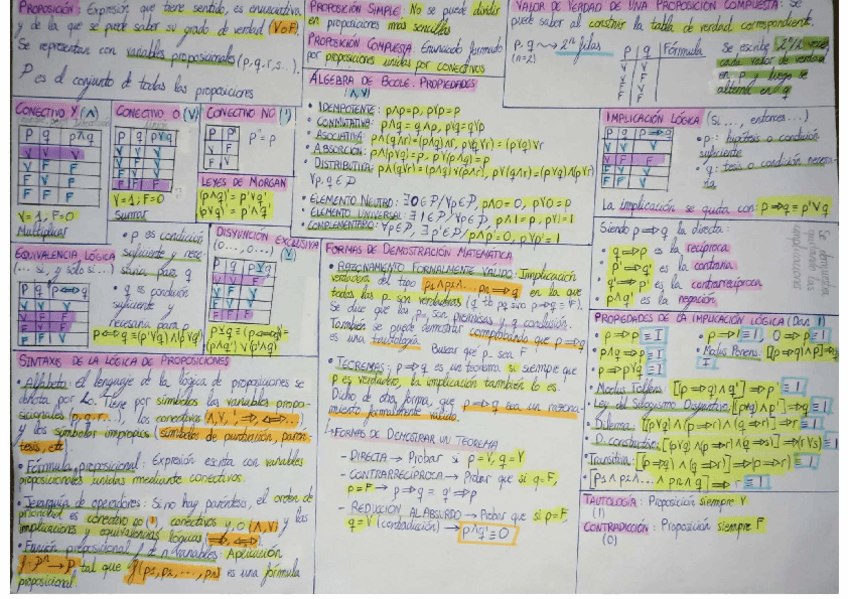 PROPOSICIÓN: Expresión que tiene sentido, es enunciativa
y de la que se puede saber su grado de verdad (V o F).
Se representan con variables proposicionales (p, q, r, s...).
P es el conjunto de todas las proposiciones
PROPOSICIÓN SIMPLE: No se puede dividir
en proposiciones más sencillas
PROPOSICIÓN COMPUESTA: Enunciado formado
por proposiciones unidas por conectivos
VALOR DE VERDAD DE UNA PROPOSICIÓN COMPUESTA: Se
puede saber al construir la tabla de verdad correspondiente.
p, q ⇝ 2ⁿ filas
(n=2)
p q Fórmula
V V
V F
F V
F F
Se escribe 2ⁿ/2 veces
cada valor de verdad
en p y luego se
alterna en q
CONECTIVO Y (∧)
p q p∧q
V V V
V F F
F V F
F F F
V=1, F=0
Multiplicar
CONECTIVO O (V)
p q p∨q
V V V
V F V
F V V
F F F
V=1, F=0
Sumar
CONECTIVO NO (')
p p'
V F
F V
p''=p
LEYES DE MORGAN
(p∧q)' = p'∨q'
(p∨q)' = p'∧q'
ÁLGEBRA DE BOOLE. PROPIEDADES
(∧ ∨)
• IDEMPOTENTE: p∧p=p, p∨p=p
• CONMUTATIVA: p∧q = q∧p, p∨q=q∨p
• ASOCIATIVA: p∧(q∧r)=(p∧q)∧r, p∨(q∨r)=(p∨q)∨r
• ABSORCIÓN: p∧(p∨q)=p, p∨(p∧q)=p
• DISTRIBUTIVA: p∧(q∨r)=(p∧q)∨(p∧r), p∨(q∧r)=(p∨q)∧(p∨r)
∀p, q ∈ P
• ELEMENTO NEUTRO: ∃0∈P/∀p∈P, p∧0=0, p∨0=p
• ELEMENTO UNIVERSAL: ∃1∈P/∀p∈P, p∧1=p, p∨1=1
• COMPLEMENTARIO: ∀p∈P, ∃p'∈P/p∧p'=0, p∨p'=1
IMPLICACIÓN LÓGICA (Si ..., entonces...)
p q p⇒q
V V V
V F F
F V V
F F V
• p: hipótesis o condición
suficiente
• q: tesis o condición necesa-
ria
La implicación se quita con p⇒q = p'∨q
EQUIVALENCIA LÓGICA
(... si, y solo si ...)
p q p⇔q
V V V
V F F
F V F
F F V
• p es condición
suficiente y nece-
saria para q
• q es condición
suficiente y
necesaria para p
p⇔q=(p'∨q)∧(p∨q')
DISYUNCIÓN EXCLUSIVA
(o..., o...) (⊻)
p q p⊻q
V V F
V F V
F V V
F F F
p⊻q=(p⇔q)'=
(p∧q')∨(p'∧q)
FORMAS DE DEMOSTRACIÓN MATEMÁTICA
• RAZONAMIENTO FORMALMENTE VÁLIDO: Implicación
verdadera del tipo p1∧p2∧...pn⇒q en la que
Se dice que las p... pn son premisas y q conclusión.
También se puede demostrar comprobando que p⇒q
es una tautología.
Buscar que p sea F
• TEOREMAS: p⇒q es un teorema si siempre que
p es verdadero, la implicación también lo es
Dicho de otra forma, que p⇒q sea un razona-
miento formalmente válido.
FORMAS DE DEMOSTRAR UN TEOREMA
– DIRECTA → Probar si p=V, q=V
– CONTRARRECÍPROCA → Probar que si q=F,
p=F → p⇒q = q'⇒p'
– REDUCCIÓN AL ABSURDO → Probar que si p=F,
q=V (contradicción) → p∧q'≡0
Siendo p⇒q la directa:
• q⇒p es la recíproca
• p'⇒q' es la contraria
• q'⇒p' es la contrarrecíproca
• p∧q' es la negación.
Se demuestra
quitando las
implicaciones
PROPIEDADES DE LA IMPLICACIÓN LÓGICA (Dan 1)
• p⇒p ≡ I
• p⇒1≡I, 0⇒p≡I
• p∧q⇒p ≡ I
• Modus Ponens: [(p⇒q)∧p]⇒q ≡ I
• p⇒p∨q ≡ I
• Modus Tollens: [(p⇒q)∧q']⇒p' ≡ I
• Ley del Silogismo Disyuntivo: [(p∨q)∧p']⇒q ≡ I
• Dilema: [(p∨q)∧(p⇒r)∧(q⇒r)]⇒r ≡ I
• D. constructivo: [(p∨q)∧(p⇒r)∧(q⇒s)]⇒(r∨s) ≡ I
• Transitiva: [(p⇒q)∧(q⇒r)]⇒(p⇒r) ≡ I
TAUTOLOGÍA: Proposición siempre V
(1)
CONTRADICCIÓN: Proposición siempre F
(0)
SINTAXIS DE LA LÓGICA DE PROPOSICIONES
• Alfabeto: el lenguaje de la lógica de proposiciones se
denota por L0. Tiene por símbolos las variables propo-
sicionales (p,q,r...), los conectivos (∧,∨,',⇒,⇔...)
y los símbolos impropios (símbolos de puntuación, parén-
tesis, etc)
• Fórmula proposicional: Expresión escrita con variables
proposicionales unidas mediante conectivos.
• Jerarquía de operadores: Si no hay paréntesis, el orden de
prioridad es conectivo no ('), conectivos y, o (∧,∨) y las
implicaciones y equivalencias lógicas (⇒,⇔).
• Función proposicional f de n variables: Aplicación
f: Pⁿ→P tal que f(p1,p2,...,pn) es una fórmula
proposicional.